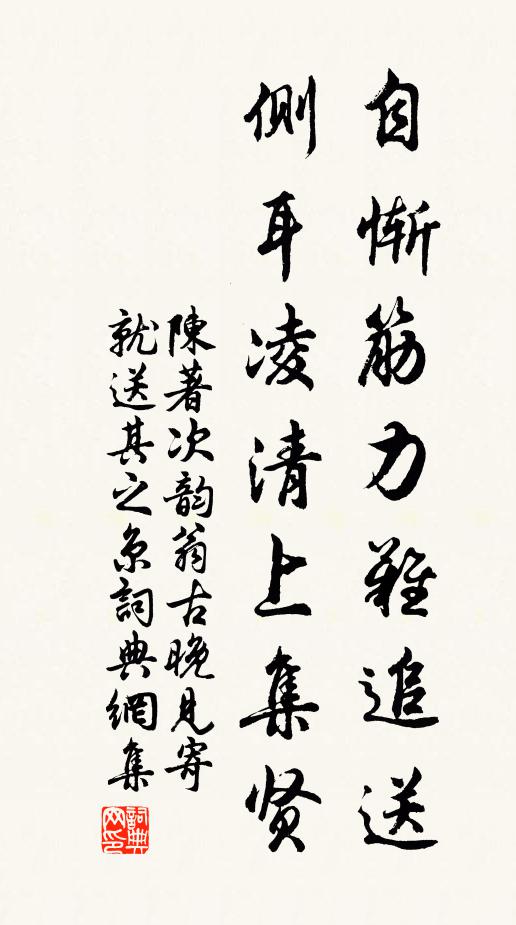 自慚筋力難追送
側耳凌清上集贤
陳著次韵翁古晚見寄
就送其之京詞典網集
詞典网印